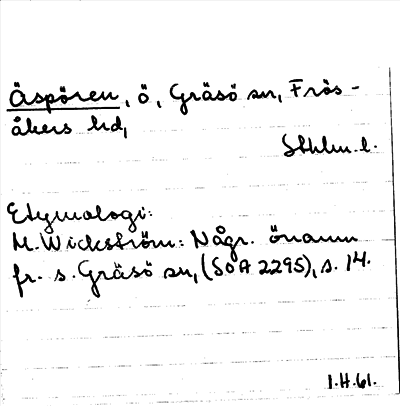 Äspören, ö, Gräsö sn, Frös-
åkers hd,
Sthlm. l.
Etymologi:
M. Wickström: Någr. önamn
fr. s. Gräsö sn, (SOA 2295), s. 14.
I.H.61.